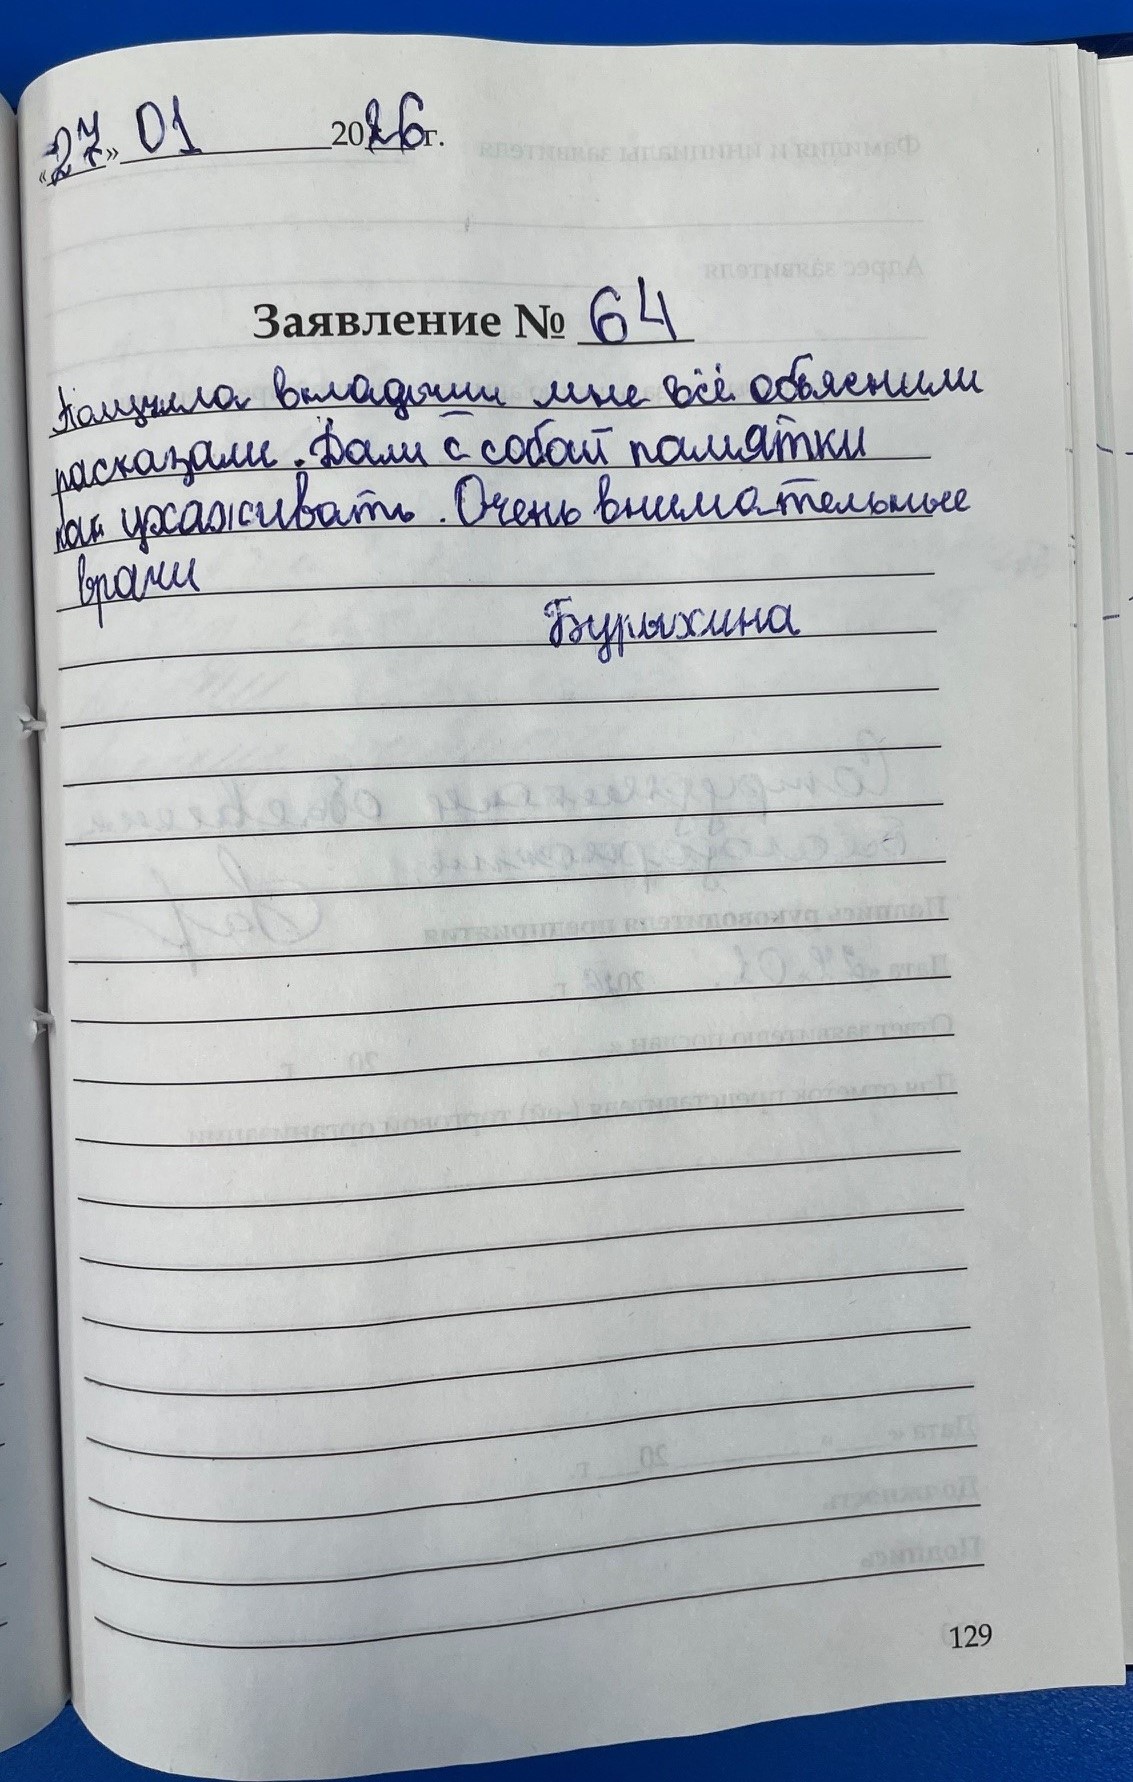 «27» 01 2026г.
Заявление № 64
Получила вкладыши мне всё объяснили
расказали. Дали с собой памятки
как ухаживать. Очень внимательные
врачи
Бурыхина
129